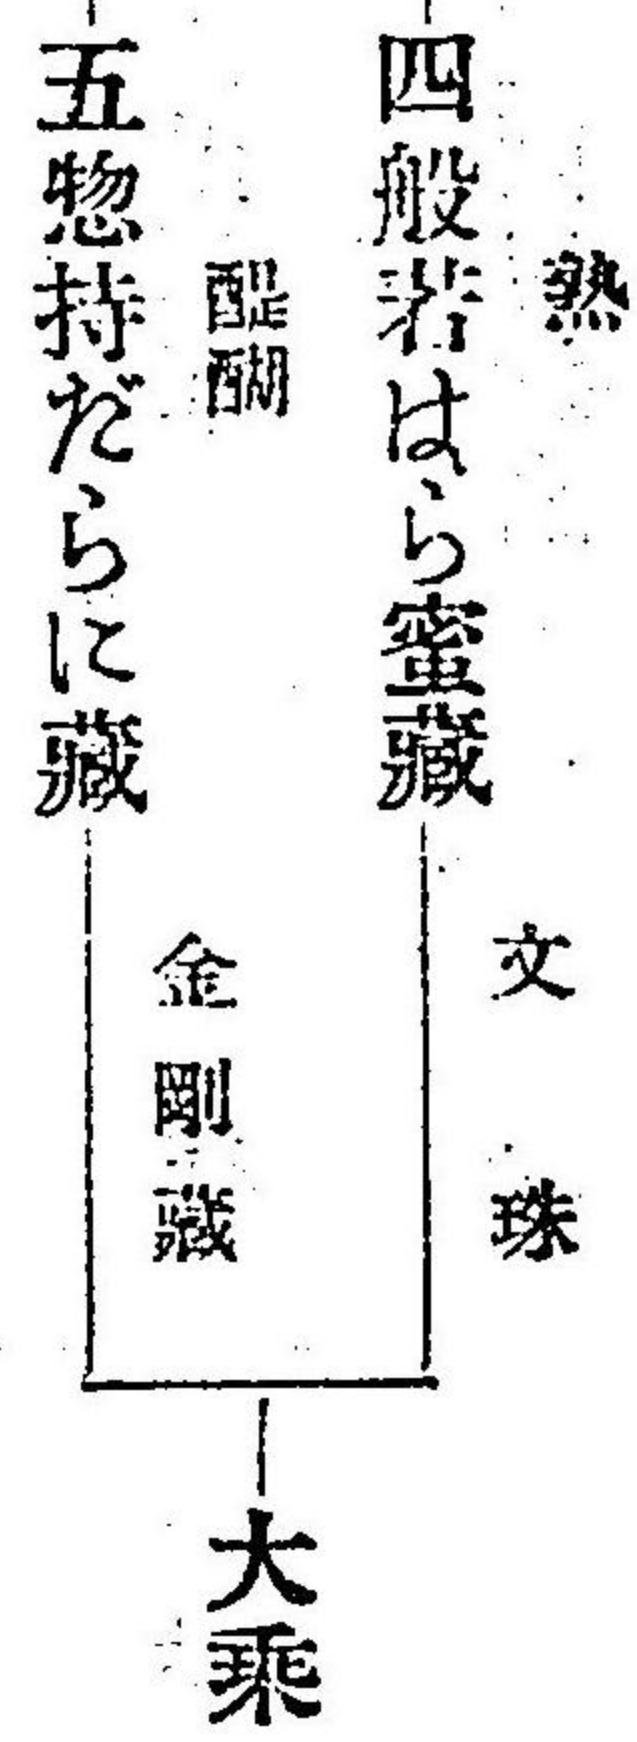 熟
四般若はら蜜藏
文珠
醍醐
五惣持だらに藏
金剛藏
大乘